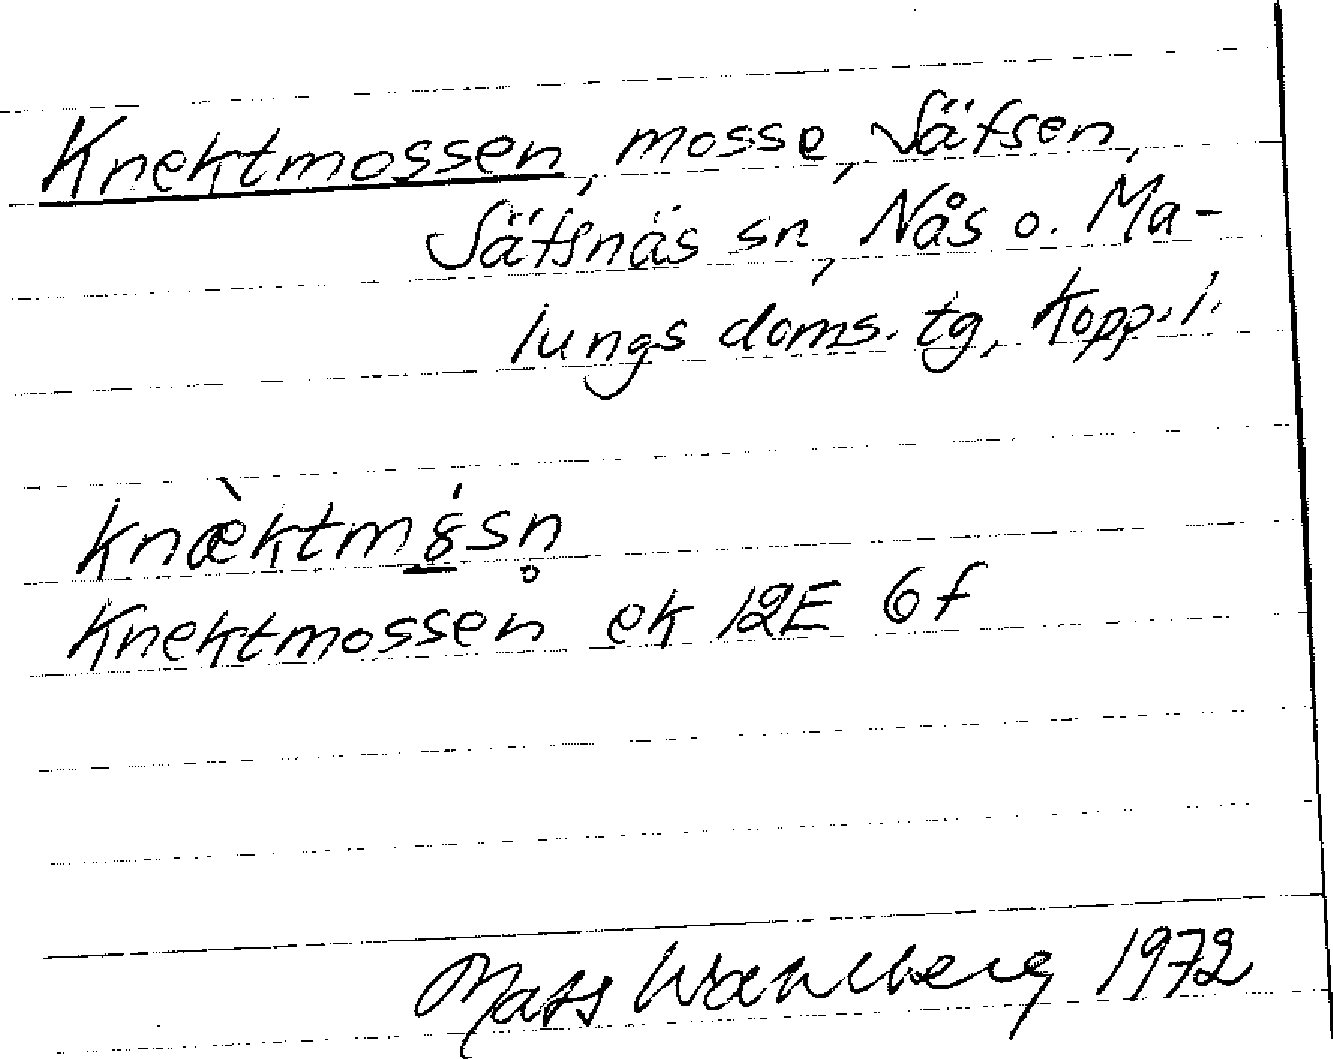 Knektmossen, mosse, Säfsen,
Säfsnäs sn, Nås o. Ma-
lungs doms. tg, Kopp. l.
knæ̀ktmꞝ́sn̥
Knektmossen ek 12E 6f
Mats Wahlberg 1972